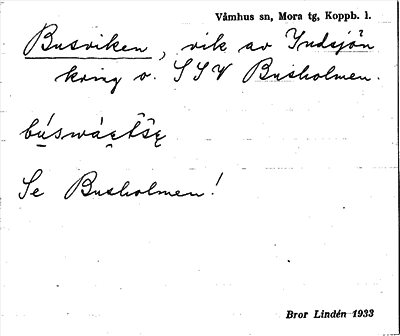 Våmhus sn, Mora tg, Koppb. l.
Busviken, vik av Indsjön
kring o. SSV Busholmen.
Se Busholmen!
Bror Lindén 1933